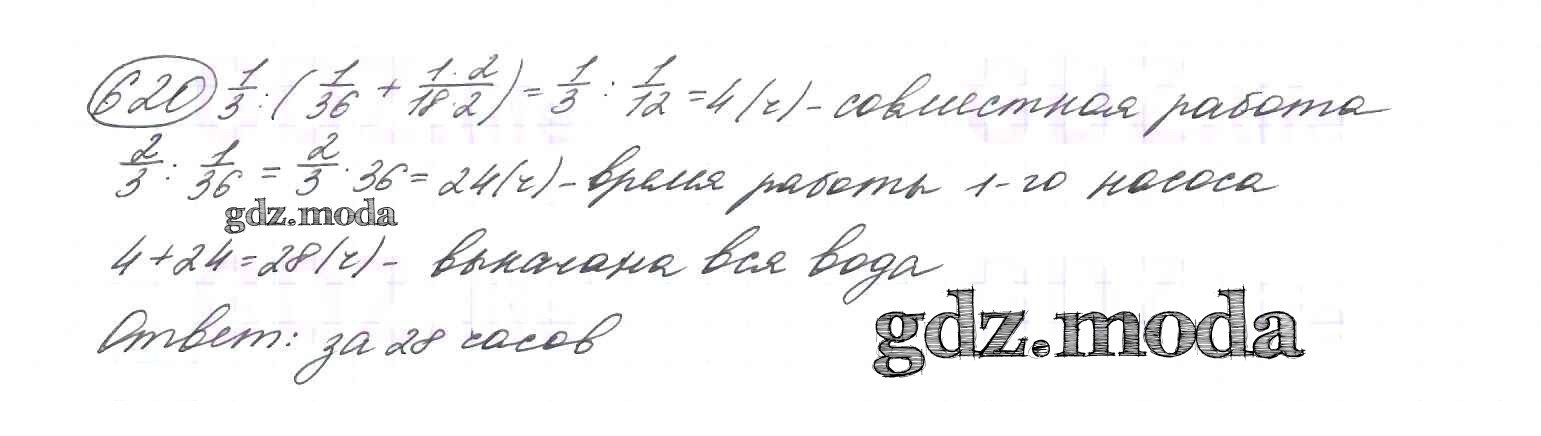 620 1/3 : (1/36 + 1·2/18·2) = 1/3 : 1/12 = 4 (ч) - совместная работа
2/3 : 1/36 = 2/3 · 36 = 24 (ч) - время работы 1-го насоса
gdz.moda
4 + 24 = 28 (ч) - выкачана вся вода
Ответ: за 28 часов
gdz.moda